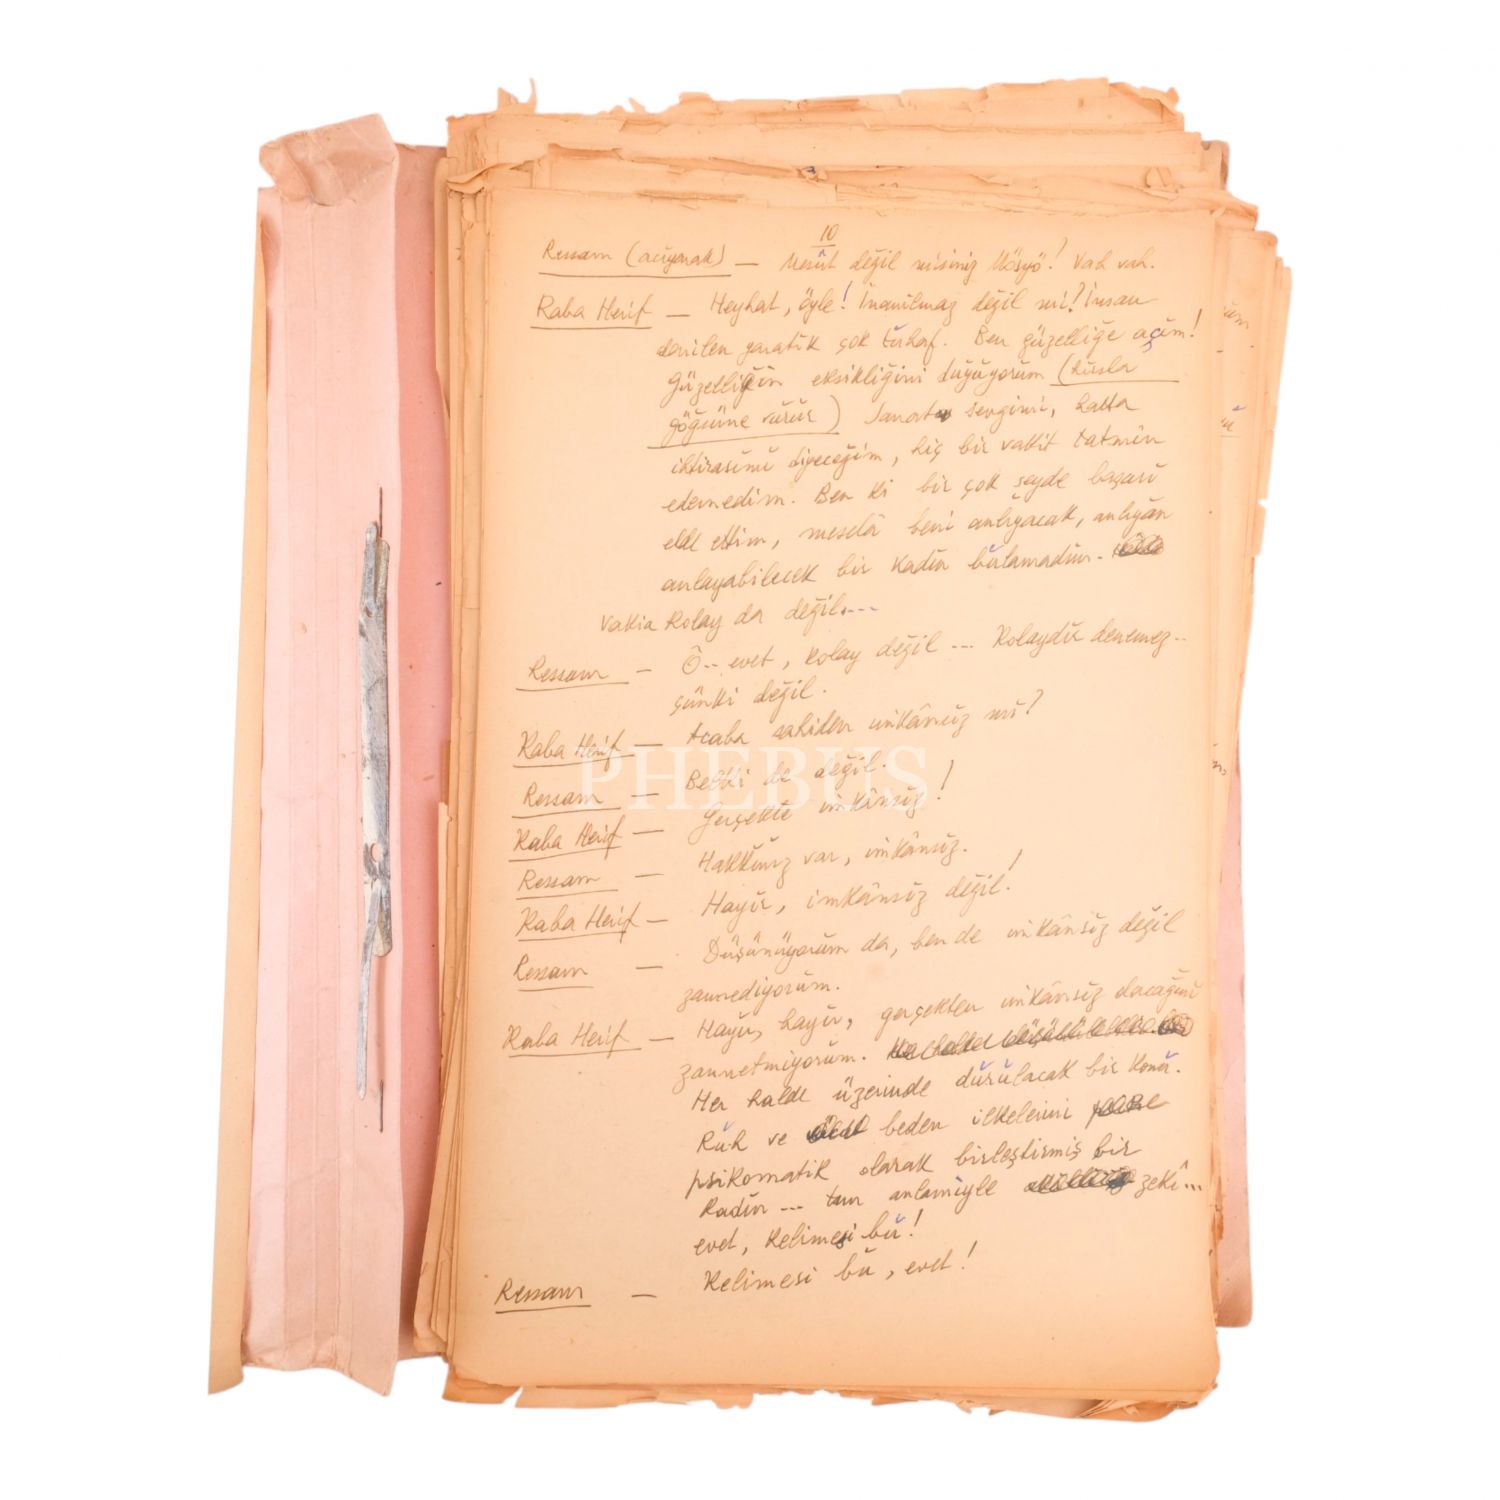 10
Ressam (acıyarak) — Mesût değil misiniz Mösyö! Vah vah.
Kaba Herif — Heyhat, öyle! İnanılmaz değil mi? İnsan
denilen yaratık çok tuhaf. Ben güzelliğe açım!
Güzelliğin eksikliğini duyuyorum (hırsla
göğsüne vurur) Sanata sevgimi, hatta
ihtirasımı diyeceğim, hiç bir vakit tatmin
edemedim. Ben ki bir çok şeyde başarı
elde ettim, meselâ beni anlıyacak, anlıyan
anlayabilecek bir kadın bulamadım.
Vakia kolay da değil....
Ressam — Ô.. evet, kolay değil ... Kolaydır denemez..
çünki değil.
Kaba Herif — Acaba sahiden imkânsız mı?
Ressam — Belki de değil.
Kaba Herif — Gerçekte imkânsız!
Ressam — Hakkınız var, imkânsız.
Kaba Herif — Hayır, imkânsız değil!
Ressam — Düşünüyorum da, ben de imkânsız değil
zannediyorum.
Kaba Herif — Hayır, hayır, gerçekten imkânsız olacağını
zannetmiyorum.
Her halde üzerinde durulacak bir konu.
Ruh ve beden ilkelerini
psikomatik olarak birleştirmiş bir
kadın ... tam anlamiyle zekî...
evet, kelimesi bu!
Ressam — Kelimesi bu, evet!
PHEBUS